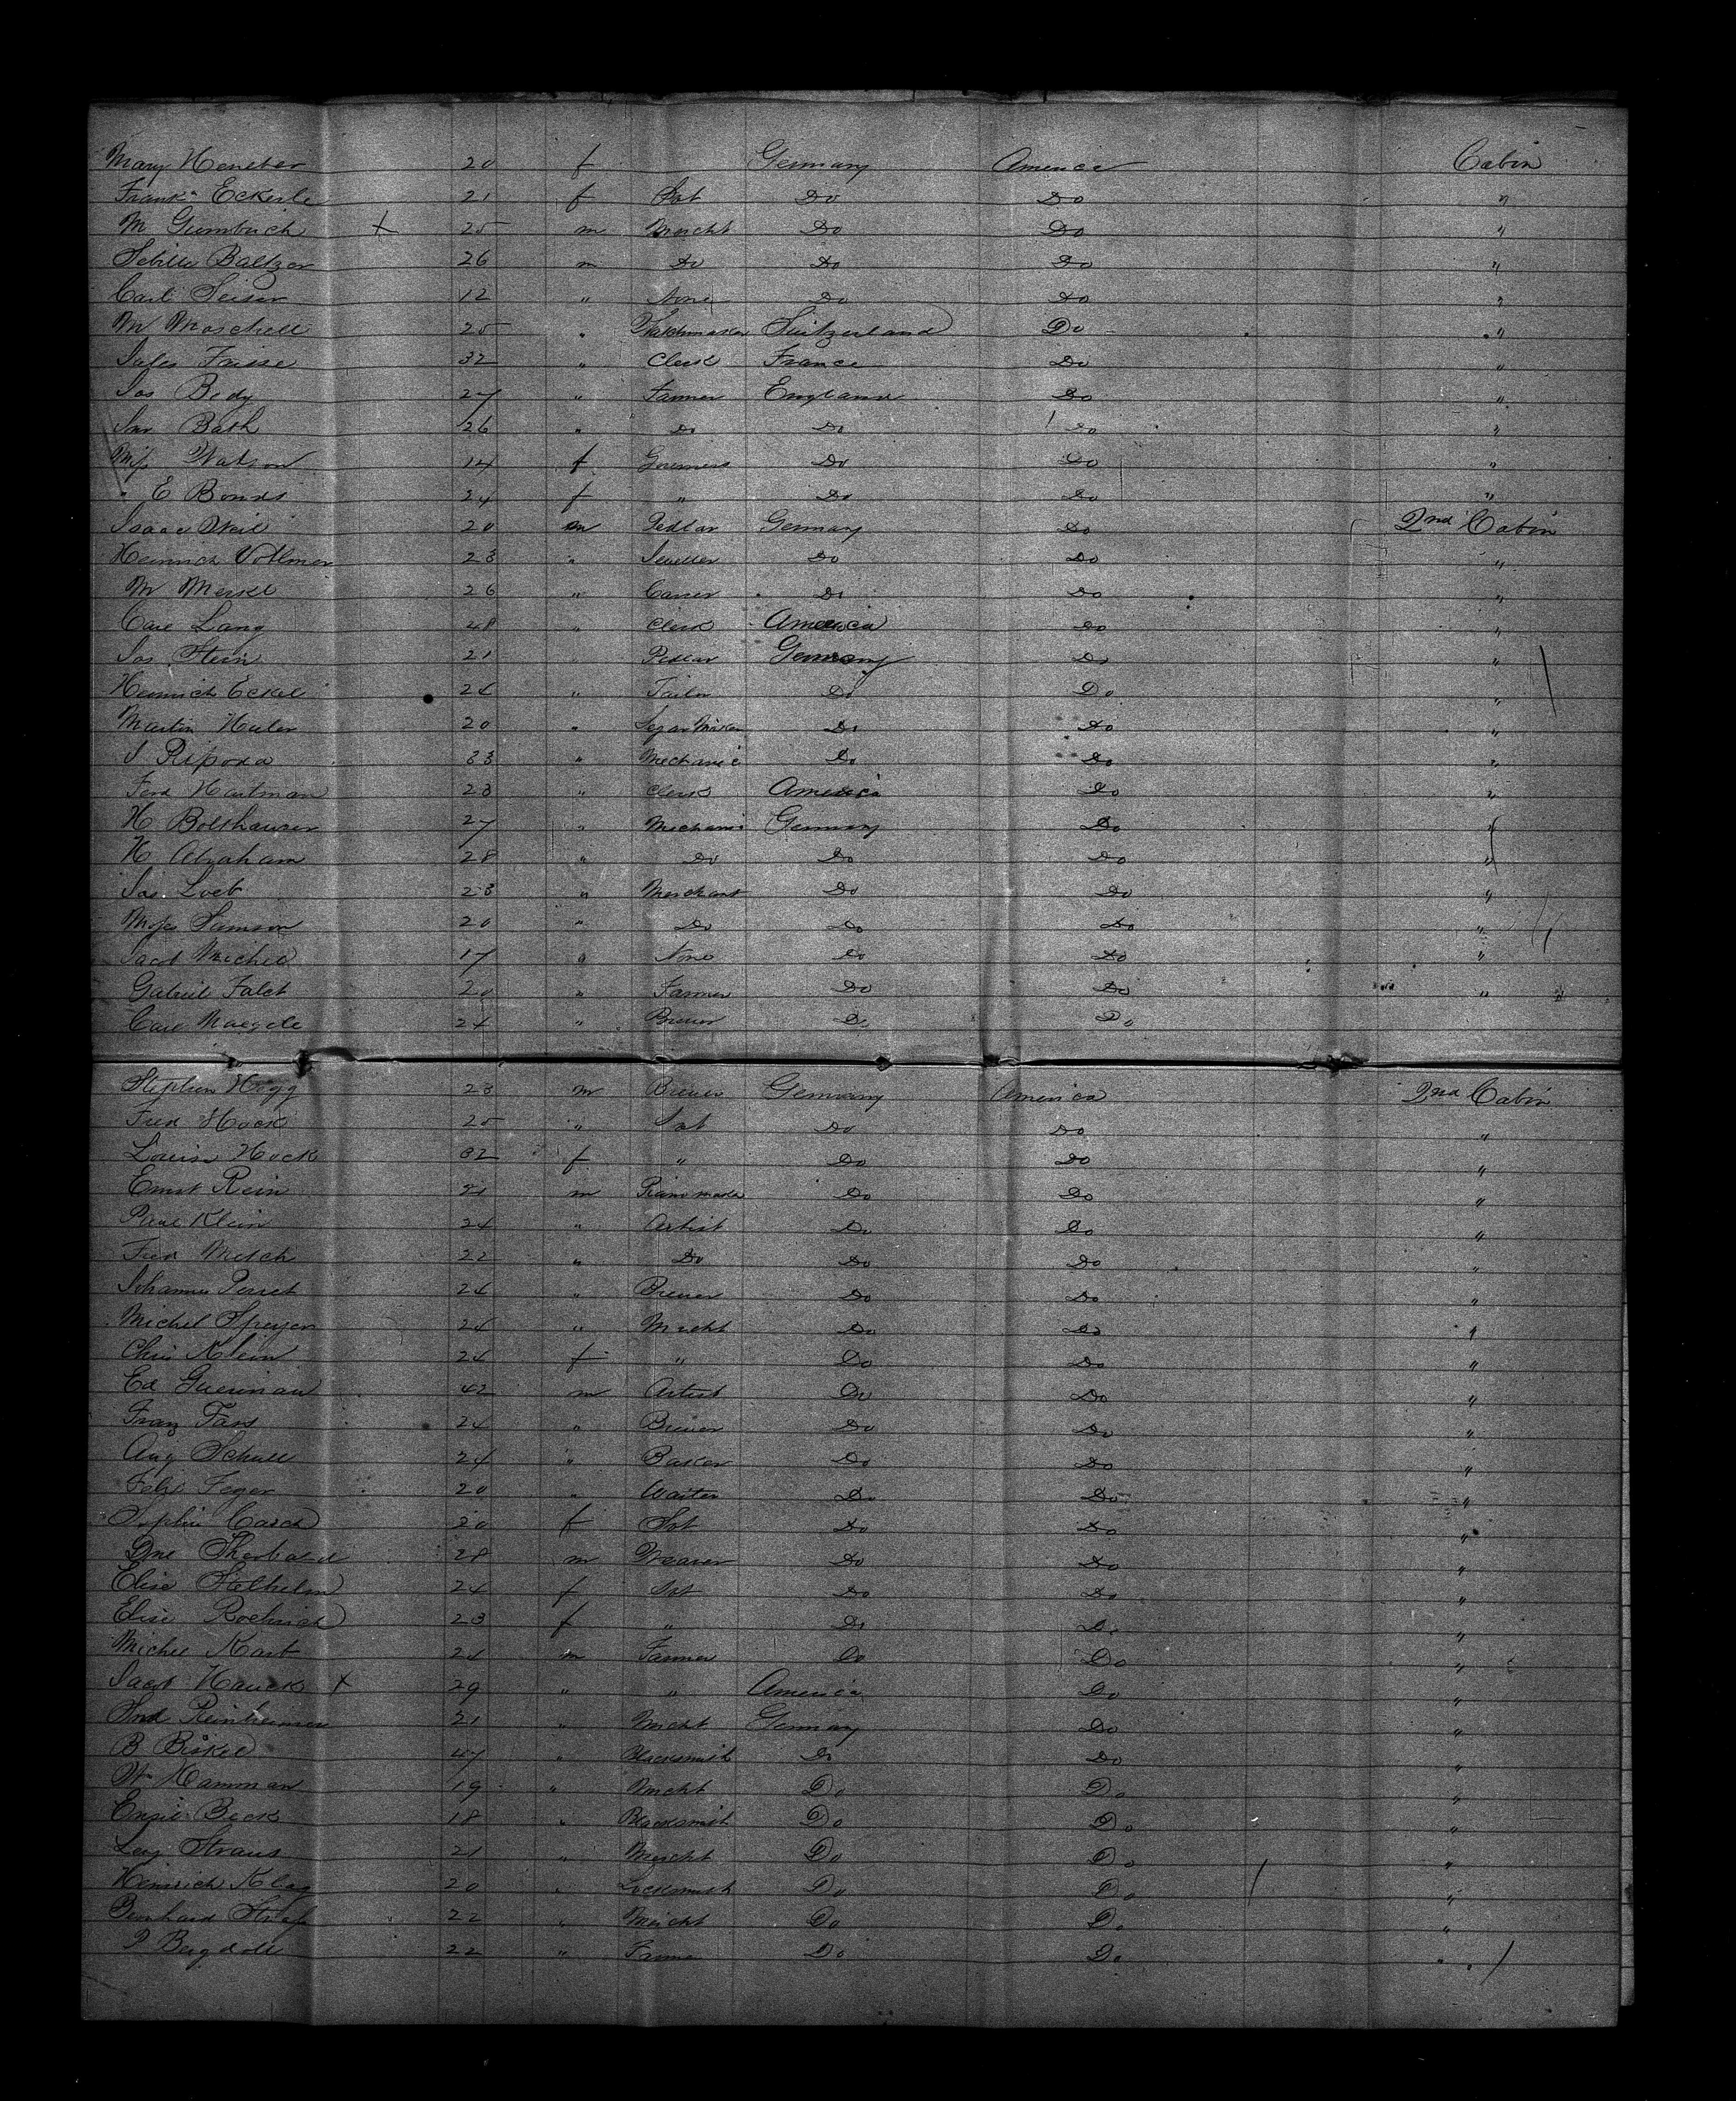 Mary Heneber 20 f Germany America Cabin
Frank Eckerle 21 f Sst Do Do "
M Gumbrich X 25 m Mercht Do Do "
Sebilla Baltzer 26 m Do Do Do "
Carl Seiser 12 " None Do Do "
M Maschell 25 " Watchmaker Switzerland Do "
Jules Faisse 32 " Clerk France Do "
Jos Bedy 27 " Farmer England Do "
Bath 26 " Do Do Do "
Miss Watson 14 f Governess Do Do "
" E Bonds 24 f " Do Do "
Isaac Weil 20 m Pedlar Germany Do 2nd Cabin
Heinrich Vollmer 23 " Jeweller Do Do "
M Merkel 26 " Do Do "
Carl Lang 48 " Clerk America Do "
Jos Stein 21 " Pedlar Germany Do "
Heinrich Eckel 24 " Tailor Do Do "
Martin Hauler 20 " Segar Maker Do Do "
33 " Mechanic Do Do "
Ferd Hartman 23 " Clerk America Do "
H Bolshauser 27 " Mechanic Germany Do "
H Abraham 28 " Do Do Do "
Jos Loeb 23 " Merchant Do Do "
Moses Samson 20 " Do Do Do "
Jacob Michel 17 " None Do Do "
Gabriel Falch 20 " Farmer Do Do "
Carl Maegele 24 " Brewer Do Do
Stephen Hogg 23 m Brewer Germany America 2nd Cabin
Fred Hock 25 " Sst Do Do "
Louisa Hock 32 f " Do Do "
Ernst Rein 21 m Piano maker Do Do "
Paul Klein 24 " Artist Do Do "
Fred Mesch 22 " Do Do Do "
Johannes Perret 24 " Brewer Do Do "
Michel Speyer 24 " Mercht Do Do "
Chris Klein 24 f " Do Do "
Ed Guerinau 42 m Artist Do Do "
Franz Fass 24 " Brewer Do Do "
Aug Schull 24 " Baker Do Do "
Felix Feger 20 " Waiter Do Do "
Sophie Casch 20 f Sst Do Do "
28 m Weaver Do Do "
Elise Stelhelm 24 f Sst Do Do "
Elise Roehrich 23 f " Do Do "
Michel Kast 24 m Farmer Do Do "
Jacob Hauck X 29 " " America Do "
Reinheimer 21 " Mercht Germany Do "
B Biskel 47 " Blacksmith Do Do "
Wm Hamman 19 " Mercht Do Do "
Beck 18 " Blacksmith Do Do "
Levy Straus 21 " Mercht Do Do "
Heinrich Klag 20 " Locksmith Do Do "
Bernhard 22 " Mercht Do Do "
P Bergdoll 22 " Farmer Do Do "